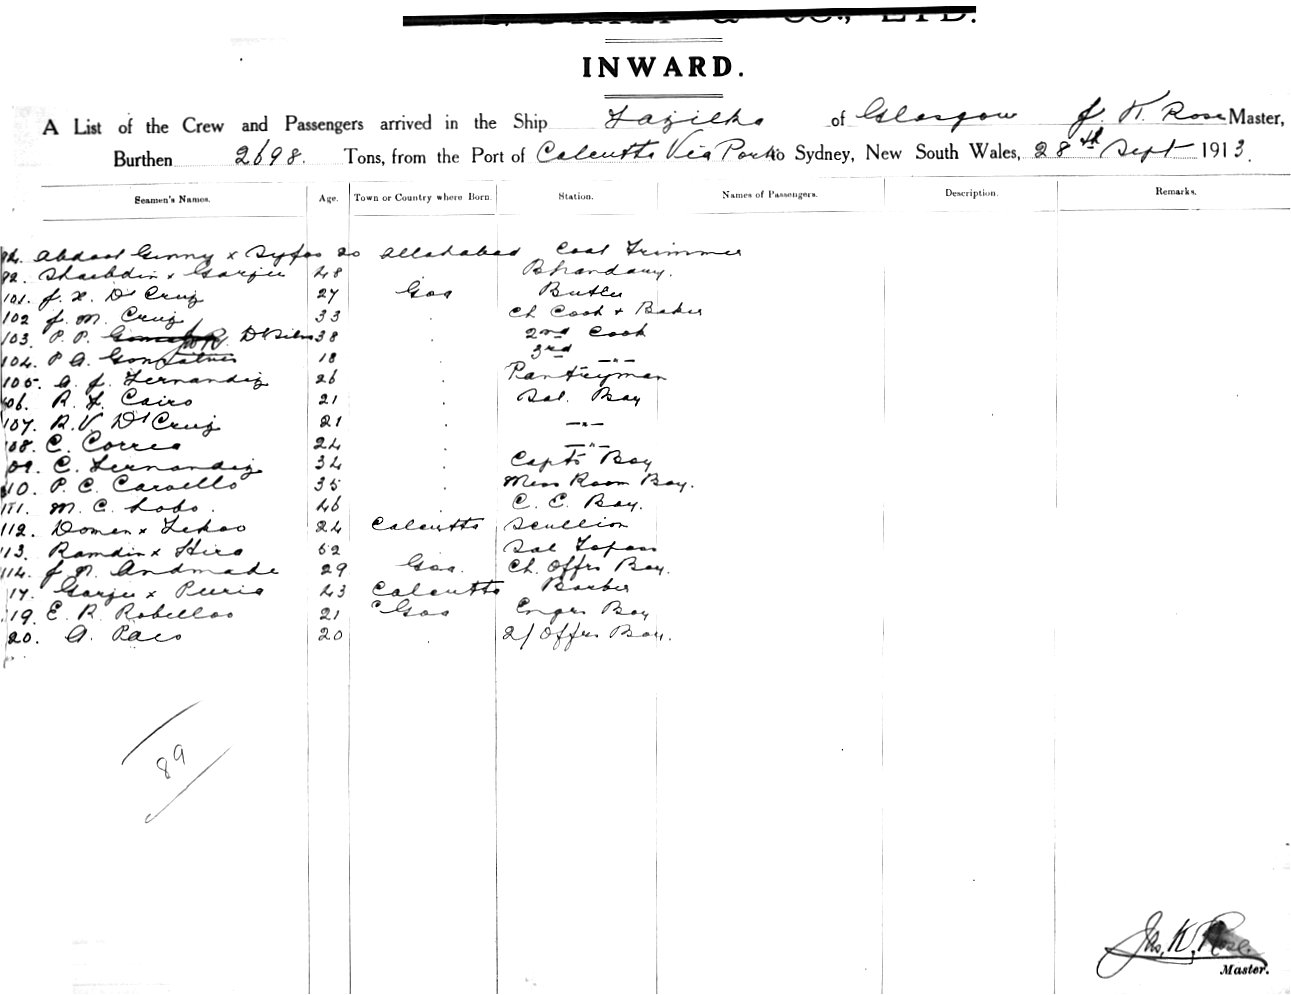 & CO., LTD.
INWARD.
A List of the Crew and Passengers arrived in the Ship Fazilka of Glasgow J. K. Rose Master,
Burthen 2698. Tons, from the Port of Calcutta Via Ports to Sydney, New South Wales, 28th Sept 1913.
Seamen's Names. Age. Town or Country where Born. Station. Names of Passengers. Description. Remarks.
Abdool Gunny x 20 Allahabad Coal Trimmer
92. Shaikdin x Garju 48 Bhandary.
101. J. X. D'Cruz 27 Goa Butler
102 J. M. Cruz 33 . Ch Cook & Baker
103. P. P. D'Silva 38 . 2nd Cook
104. P A. Gonsalves 18 . 3rd -"-
105. A. J. Fernandiz 26 . Pantryman
106. R. F. Cairo 21 . Sal. Boy
107. R. V. D'Cruz 21 . -"-
108. C. Correa 24 . -"-
109. C. Fernandiz 34 . Capts Boy
110. P. C. Carvello 35 . Mess Room Boy.
111. M. C. Lobo. 46 . C. E. Boy.
112. Domen x 24 Calcutta Scullion
113. Ramdin x Hira 62 Sal Topass
114. J. N. Andrade 29 Goa. Ch. Offrs Boy.
117. Garju x 43 Calcutta Barber
119. E. R. Robelloo 21 Goa Engrs Boy
120. A. Paes 20 . 2/ Offrs Boy.
89
Jas. K. Rose.
Master.